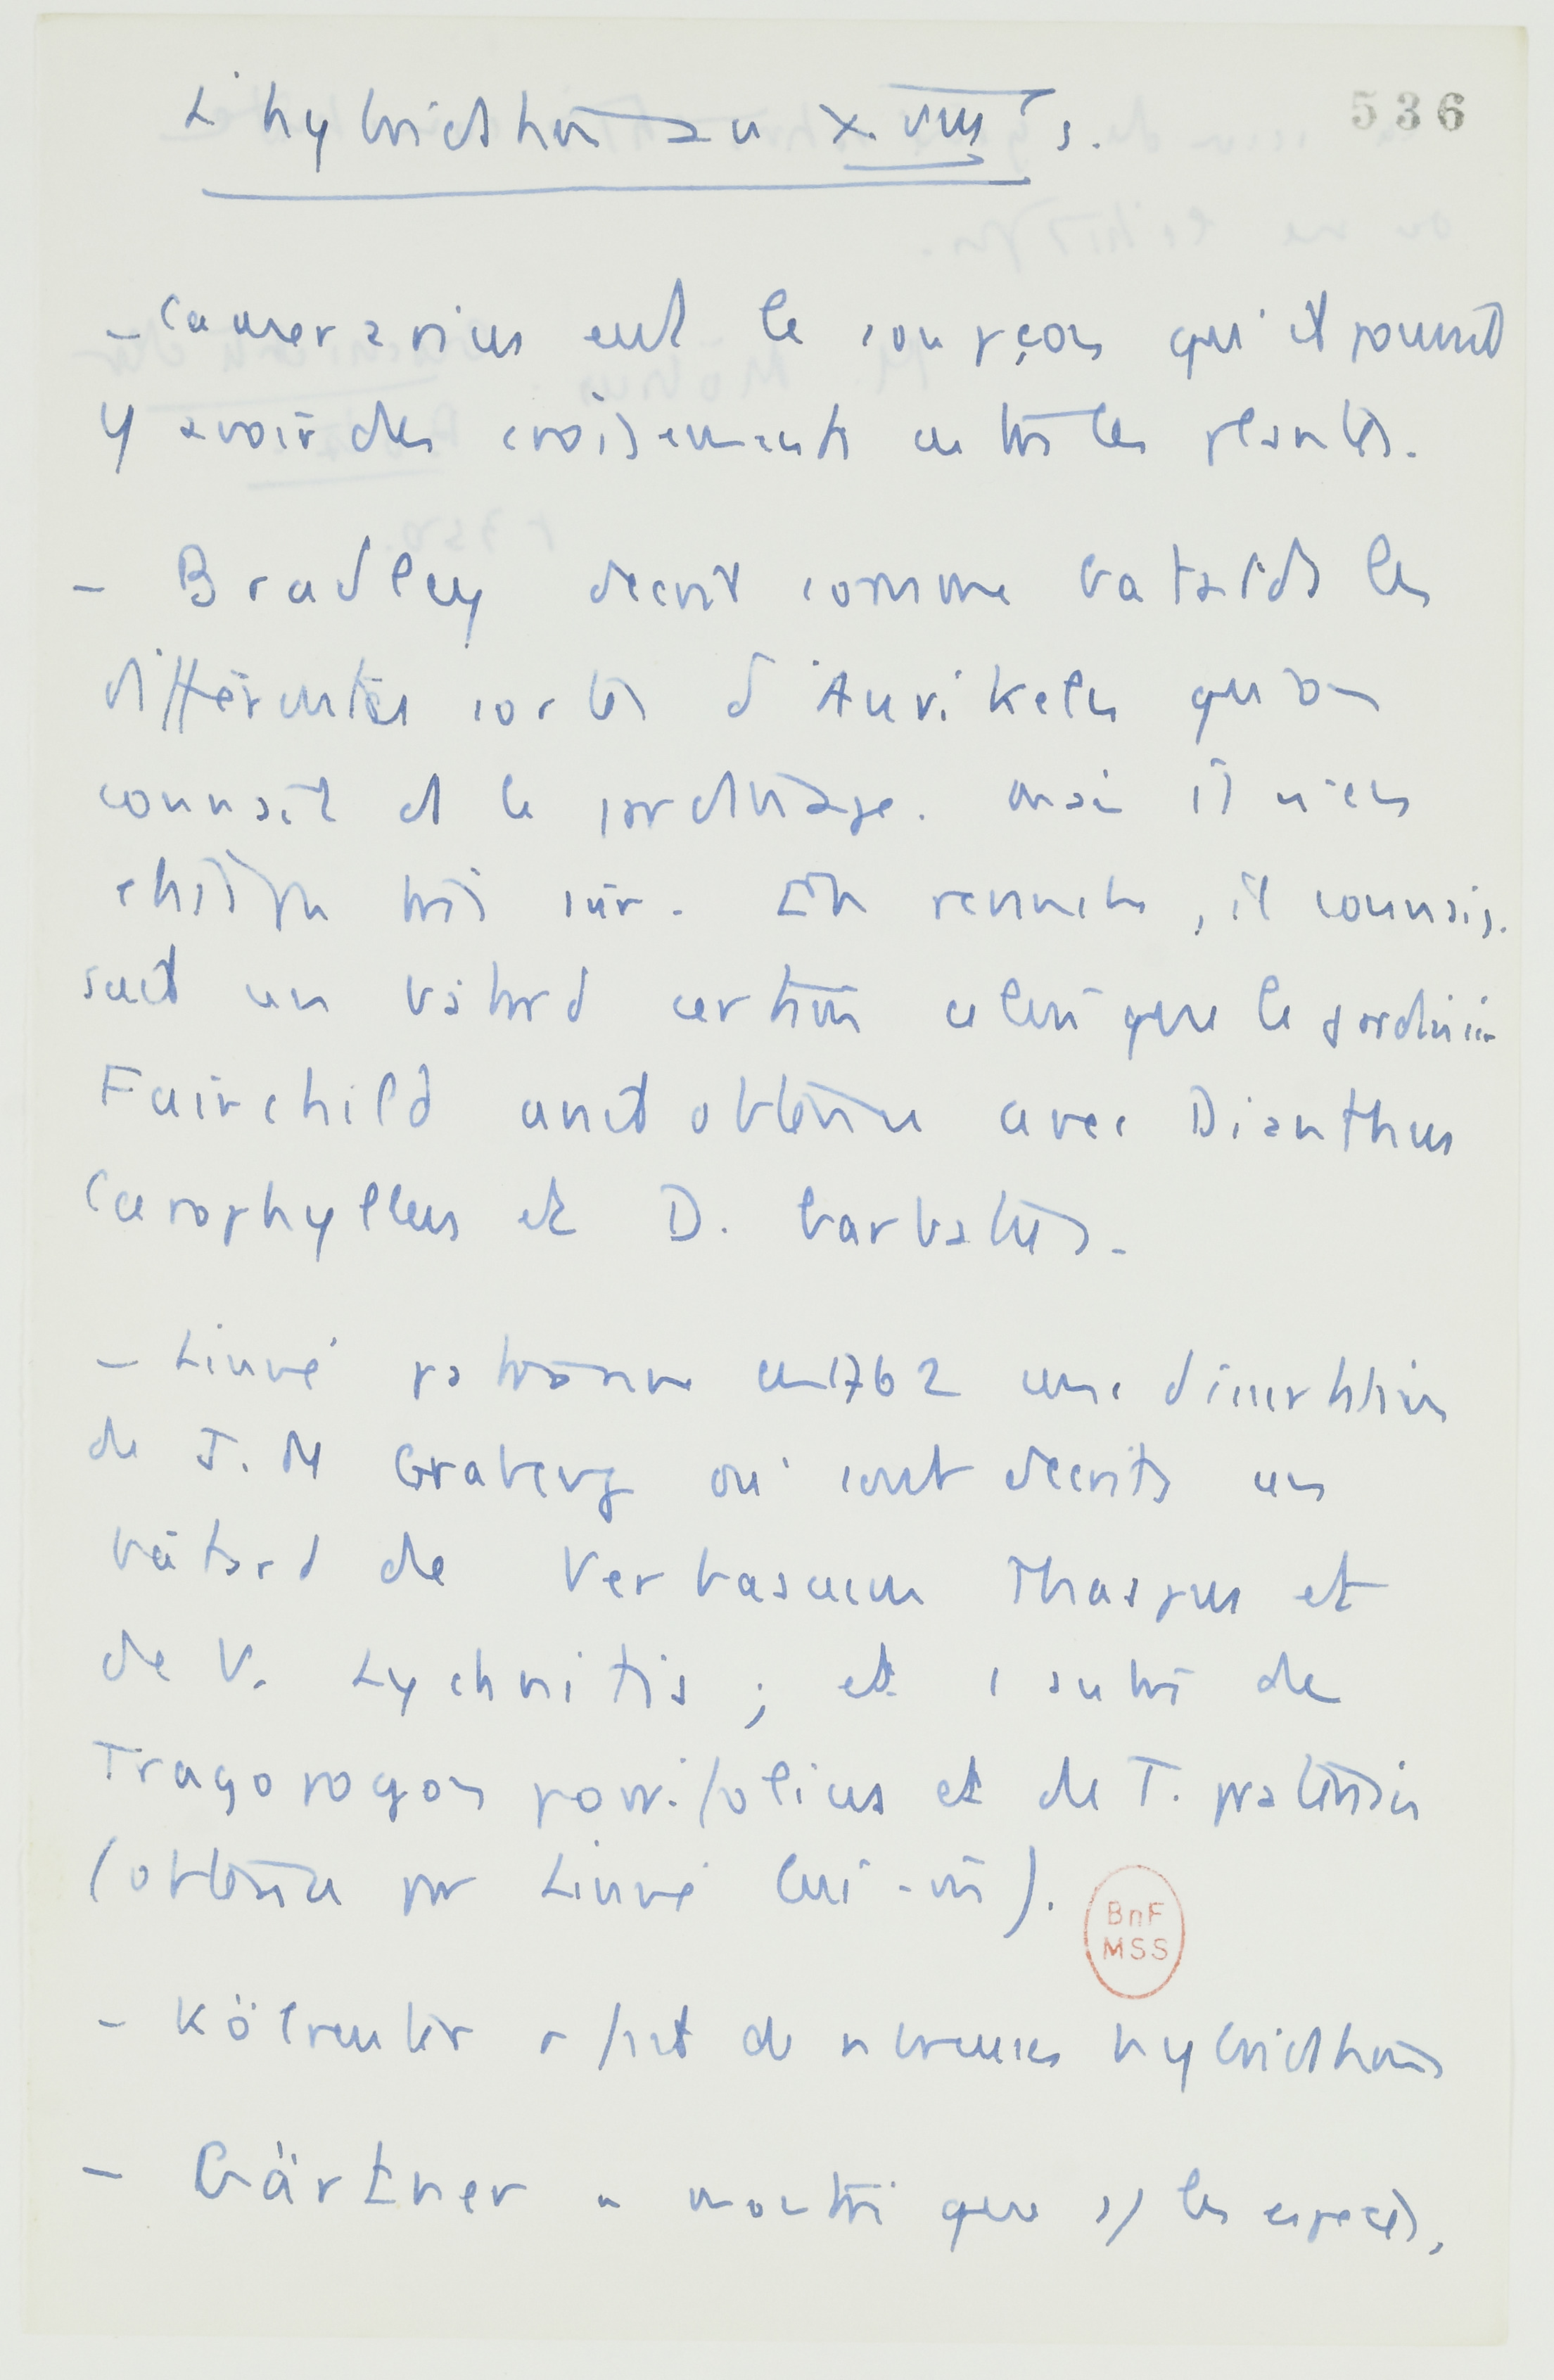 L'hybridation au XVIIIe s.
536
- Camerarius eut le soupçon qu'il pouvait
y avoir des croisements entre les plantes.
- Bradley décrit comme batards les
différentes sortes d'Aurikeln qu'on
connait ds le jardinage. mais il n'en
était pas très sûr. En revanche, il connais-
sait un bâtard certain celui que le jardinier
Fairchild avait obtenu avec Dianthus
Carophyllus et D. barbatus.
- Linné patronne en 1762 une dissertation
de J. M Graberg où sont décrits un
bâtard de Verbascum Thaspus et
de V. Lychnitis ; et 1 autre de
Tragopogon porrifolius et de T. pratensis
(obtenu par Linné lui-m).
BnF
MSS
- Kölreuter a fait de nbreuses hybridations
- Gärtner a montré que ds les espèces,